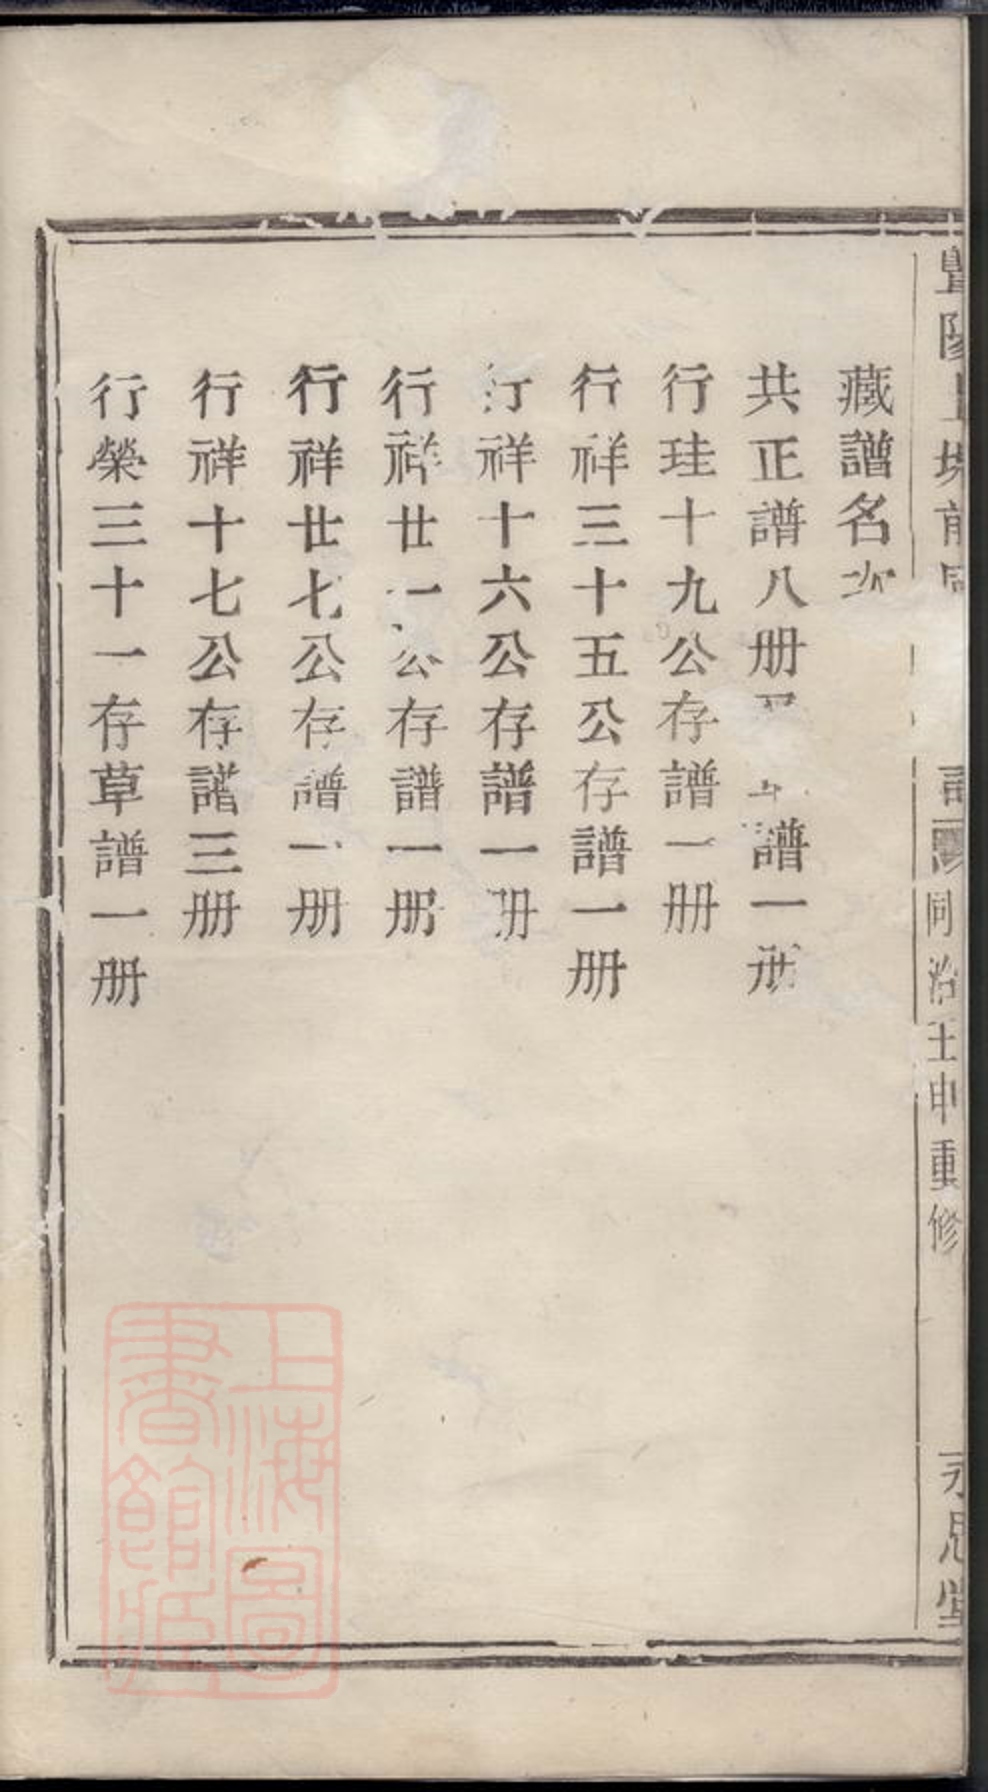 暨陽上 前 譜
同治壬申重修
永思堂
藏譜名次
共正譜八册又草譜一册
行珪十九公存譜一册
行祥三十五公存譜一册
行祥十六公存譜一册
行祥廿一公存譜一册
行祥廿七公存譜一册
行祥十七公存譜三册
行榮三十一存草譜一册
上海圖書館藏